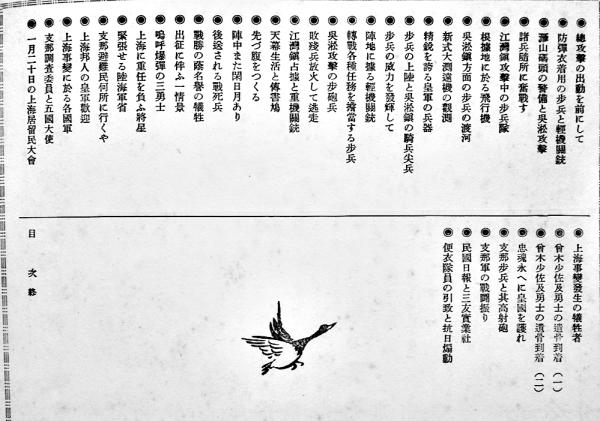 ◉ 總攻擊の出動を前にして
◉ 防彈衣着用の步兵と輕機關銃
◉ 滙山碼頭の警備と吳淞攻擊
◉ 諸兵隨所に奮戰す
◉ 江灣鎭攻擊中の步兵隊
◉ 根據地に於る飛行機
◉ 吳淞鎭方面の步兵の渡河
◉ 新式大測遠機の觀測
◉ 精銳を誇る皇軍の兵器
◉ 步兵の上陸と吳淞鎭の騎兵尖兵
◉ 步兵の威力を發揮して
◉ 陣地に據る輕機關銃
◉ 轉戰各種任務を擔當する步兵
◉ 吳淞攻擊の步砲兵
◉ 敗殘兵放火して逃走
◉ 江灣鎭占據と重機關銃
◉ 天幕生活と傳書鳩
◉ 先づ腹をつくる
◉ 陣中また閑日月あり
◉ 後送される戰死兵
◉ 戰勝の蔭名譽の犧牲
◉ 出征に伴ふ一情景
◉ 嗚呼爆彈の三勇士
◉ 上海に重任を負ふ將星
◉ 緊張せる陸海軍省
◉ 支那避難民何所に行くや
◉ 上海邦人の皇軍歡迎
◉ 上海事變に於る各國軍
◉ 支那調査委員と五國大使
◉ 一月二十日の上海居留民大會
◉ 上海事變發生の犧牲者
◉ 曾木少佐及勇士の遺骨到着(一)
◉ 曾木少佐及勇士の遺骨到着(二)
◉ 忠魂永へに皇國を護れ
◉ 支那步兵と其高射砲
◉ 支那軍の戰鬪振り
◉ 民國日報と三友實業社
◉ 便衣隊員の引致と抗日煽動
目次終